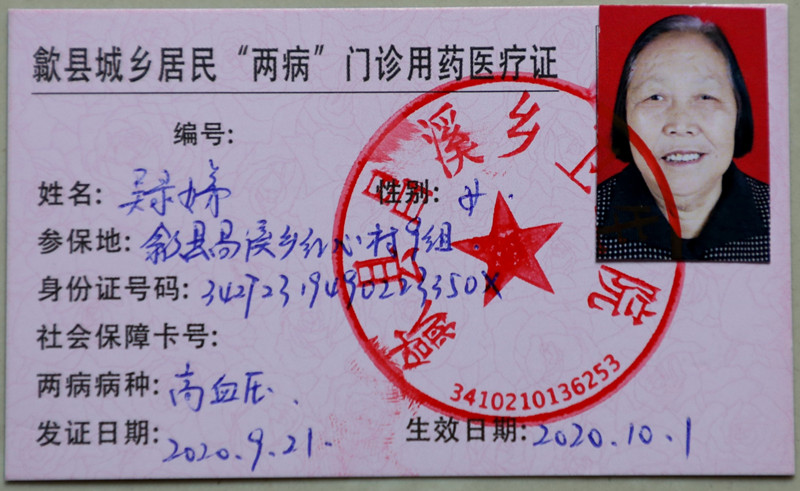 歙县城乡居民“两病”门诊用药医疗证
编号:
姓名: 吴绿娣 性别: 女.
参保地: 歙县昌溪乡红心村9组.
身份证号码: 34272319490223350X
社会保障卡号:
两病病种: 高血压.
发证日期: 2020.9.21. 生效日期: 2020.10.1
歙县昌溪乡卫生院
3410210136253